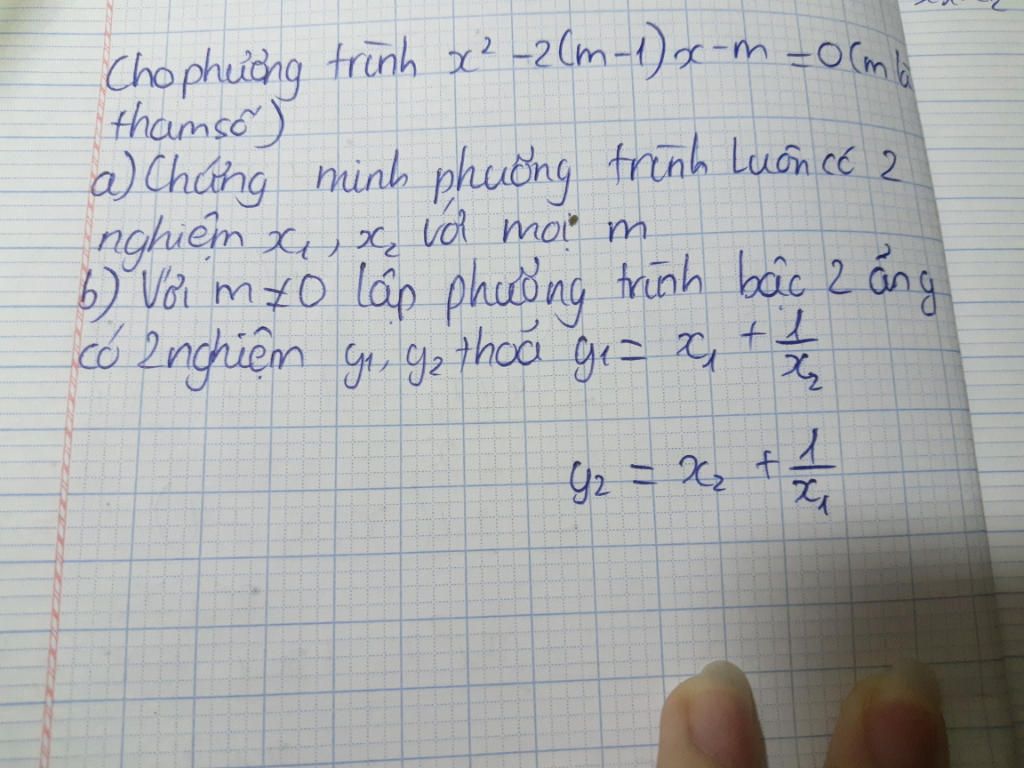 Cho phương trình x² - 2(m-1)x - m = 0 (m là
tham số)
a) Chứng minh phương trình luôn có 2
nghiệm x₁, x₂ với mọi m
b) Với m ≠ 0 lập phương trình bậc 2 ẩn y
có 2 nghiệm y₁, y₂ thoả y₁ = x₁ + 1/x₂
y₂ = x₂ + 1/x₁